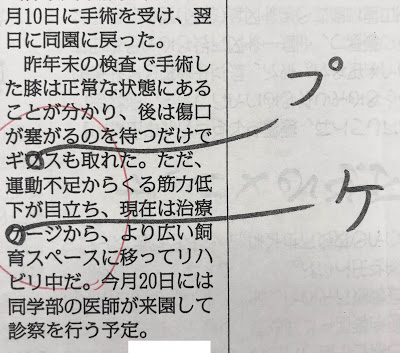 月10日に手術を受け、翌
日に同園に戻った。
昨年末の検査で手術し
た膝は正常な状態にある
ことが分かり、後は傷口
が塞がるのを待つだけで
ギスも取れた。ただ、
運動不足からくる筋力低
下が目立ち、現在は治療
ージから、より広い飼
育スペースに移ってリハ
ビリ中だ。今月20日には
同学部の医師が来園して
診察を行う予定。
プ
ケ